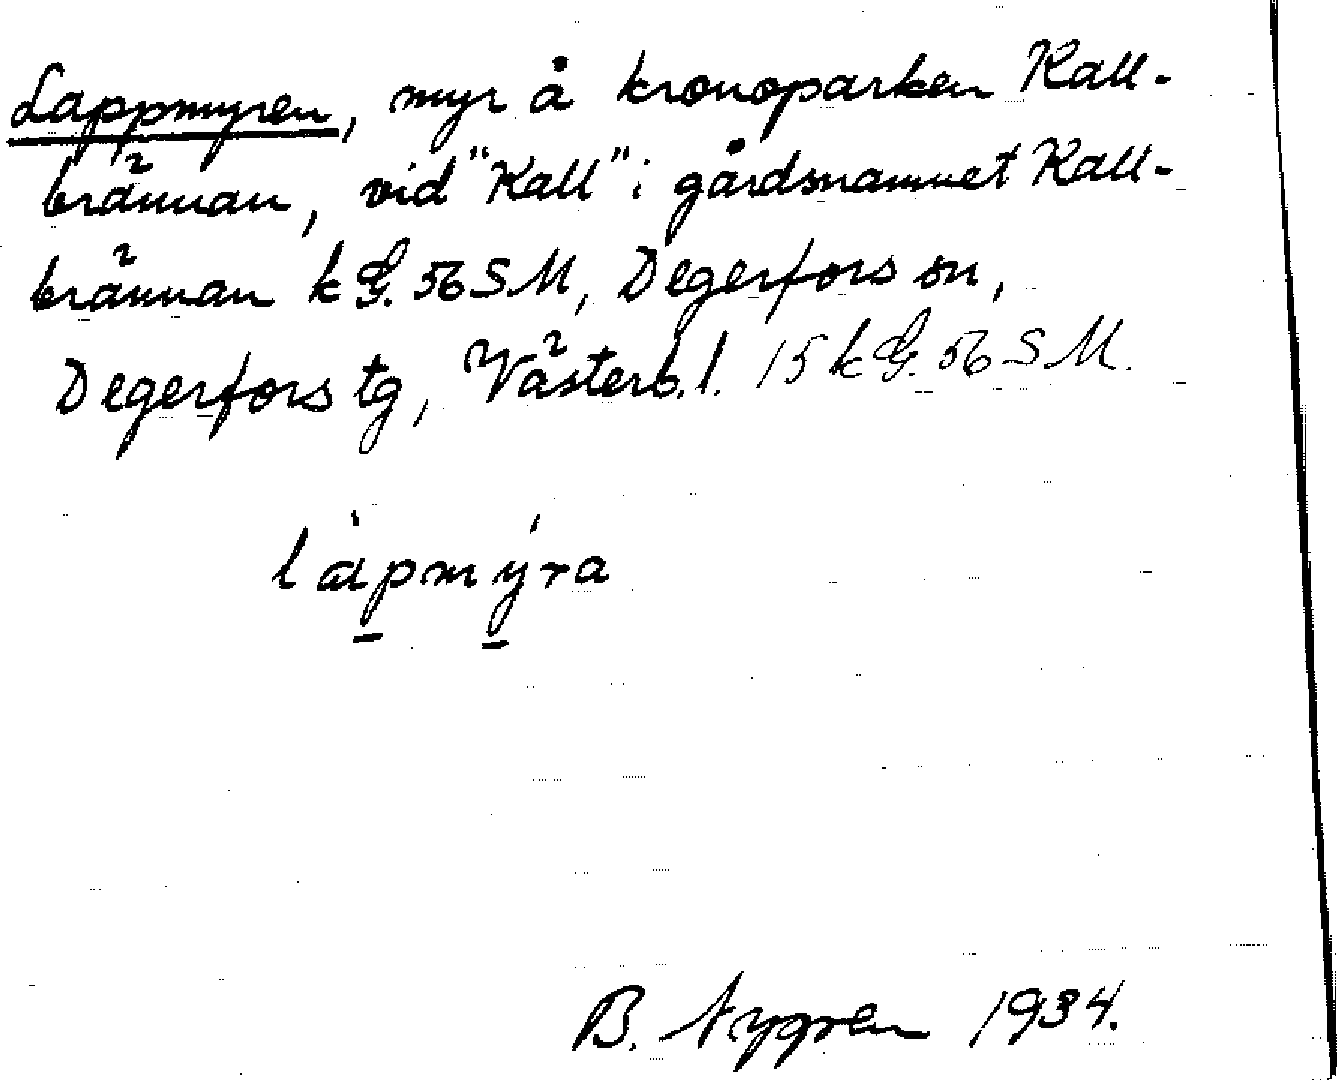 Lappmyren, myr å kronoparken Kall-
brännan, vid "Kall" i gårdsnamnet Kall-
brännan k G. 56 SM, Degerfors sn,
Degerfors tg, Västerb. l. 15 k G. 56 SM.
lápmýra
B. Nygren 1934.